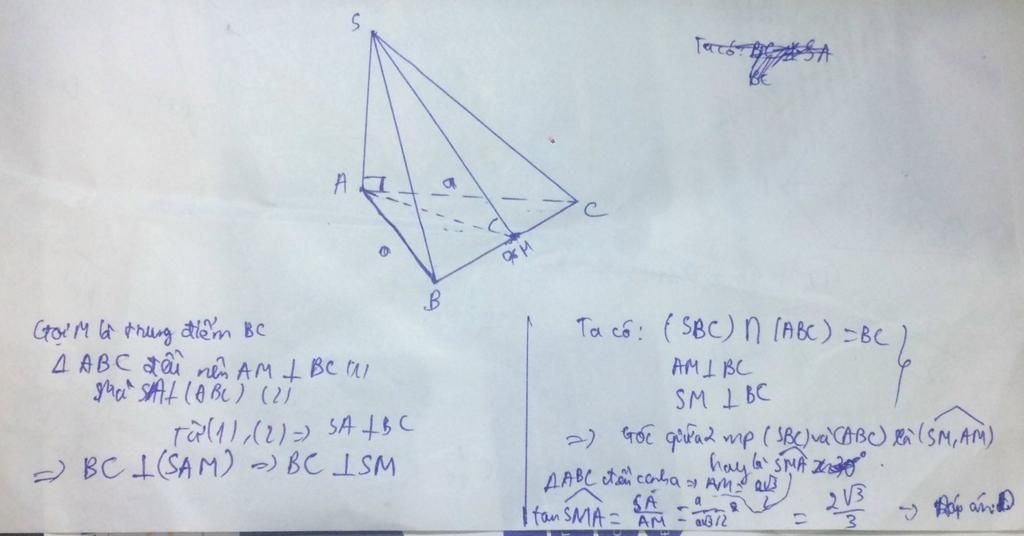 S
A
a
C
a
M
B
Ta có: BC ⊥ SA
BC
Gọi M là trung điểm BC
Δ ABC đều nên AM ⊥ BC (1)
Mà SA ⊥ (ABC) (2)
Từ (1), (2) => SA ⊥ BC
=> BC ⊥ (SAM) => BC ⊥ SM
Ta có: (SBC) ∩ (ABC) = BC
AM ⊥ BC
SM ⊥ BC
=> Góc giữa 2 mp (SBC) và (ABC) là (SM, AM)
hay là SMA
Δ ABC đều cạnh a => AM = a√3/2
tan SMA = SA/AM = a/(a√3/2) = 2√3/3 → Đáp án D